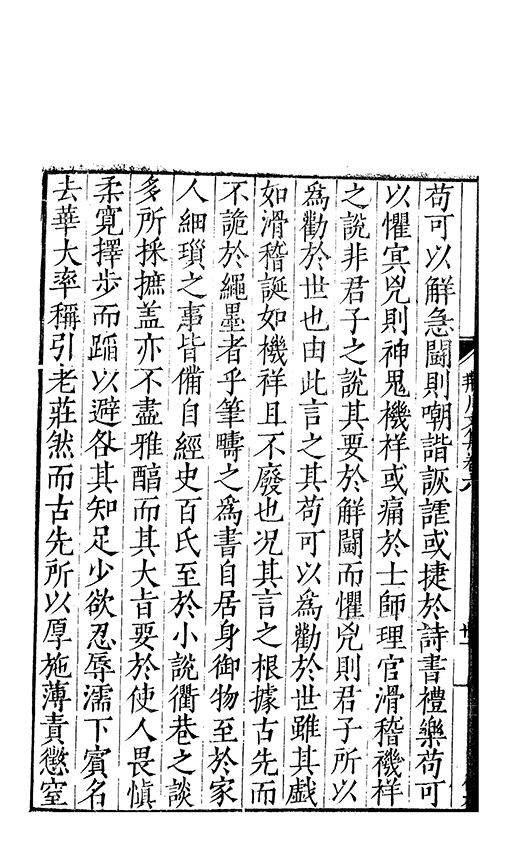 荆川文集卷六
苟可以解急鬬則嘲諧詼誑或捷於詩書禮樂苟可
以懼冥兇則神鬼機祥或痛於士師理官滑稽禨祥
之說非君子之說其要於解鬬而懼兇則君子所以
爲勸於世也由此言之其苟可以爲勸於世雖其戲
如滑稽誕如機祥且不廢也况其言之根據古先而
不詭於繩墨者乎筆疇之爲書自居身御物至於家
人細瑣之事皆備自經史百氏至於小說衢巷之談
多所採摭盖亦不盡雅醕而其大㫖要於使人畏愼
柔寛擇步而蹈以避咎其知足少欲忍辱濡下賔名
去華大率稱引老莊然而古先所以厚施薄責懲窒